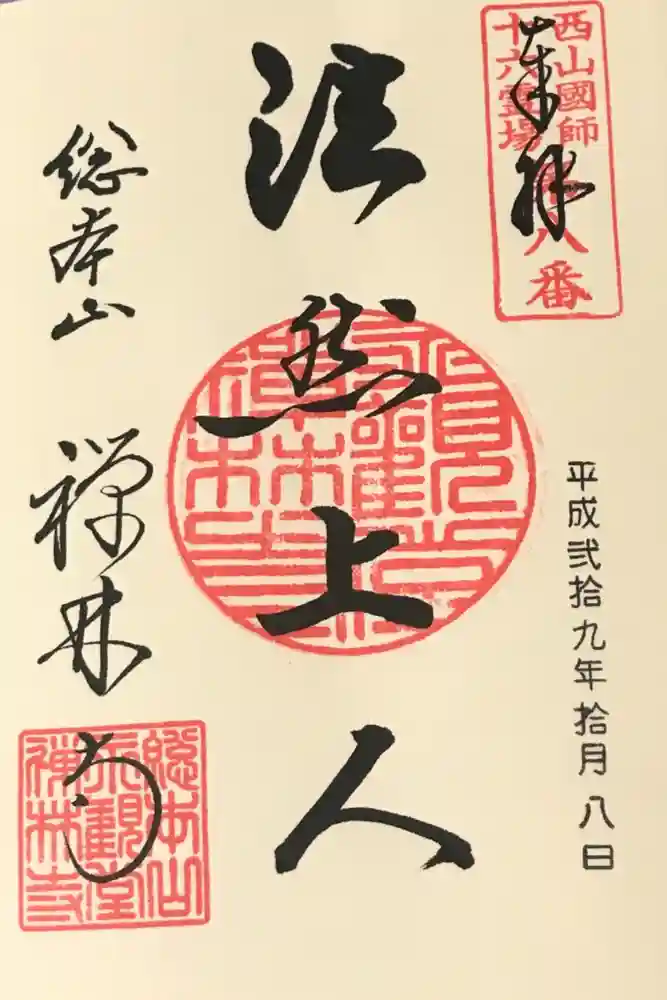 西山國師
十六霊場
第八番
奉拝
平成弐拾九年拾月八日
法然上人
総本山 禅林寺
総本山
永観堂
禅林寺